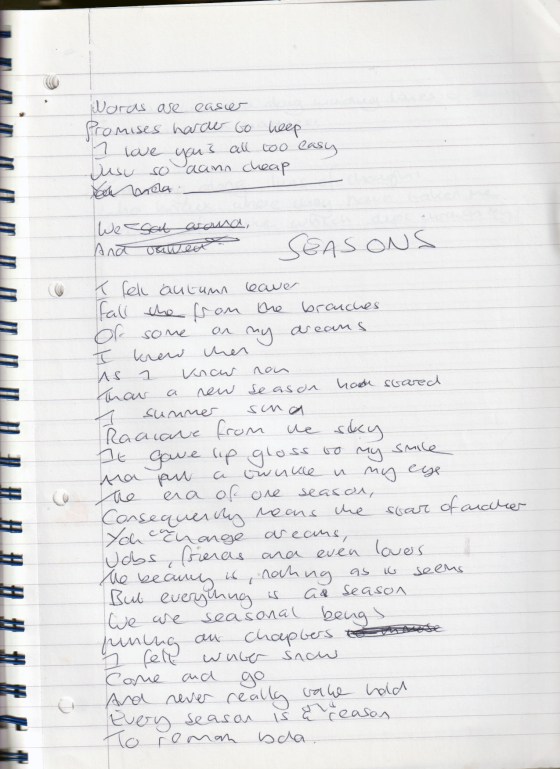 Words are easier
Promises harder to keep
I love you's all too easy
Just so damn cheap
We sat around,
And
SEASONS
I felt autumn leaves
Fall the from the branches
Of some on my dreams
I knew then
As I know now
That a new season had started
I summer sun
Radiate from the sky
It gave lip gloss to my smile
And put a twinkle in my eye
The end of one season,
Consequently means the start of another
You can change dreams,
Jobs, friends and even lovers
The beauty is, nothing as it seems
But everything is a season
We are seasonal beings
chapters
I felt winter snow
Come and go
And never really take hold
Every season is a reason
To remain bold.